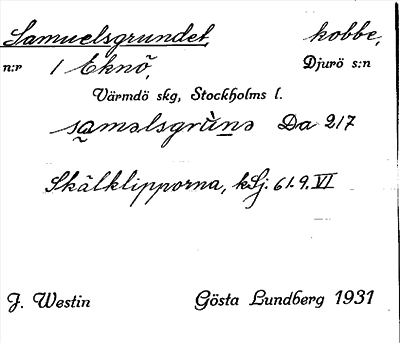 Samuelsgrundet, kobbe,
n:r 1 Eknö, Djurö s:n
Värmdö skg, Stockholms l.
saməlsgrùnə Da 217
Skälklipporna, kSj. 61.9.VI
J. Westin Gösta Lundberg 1931